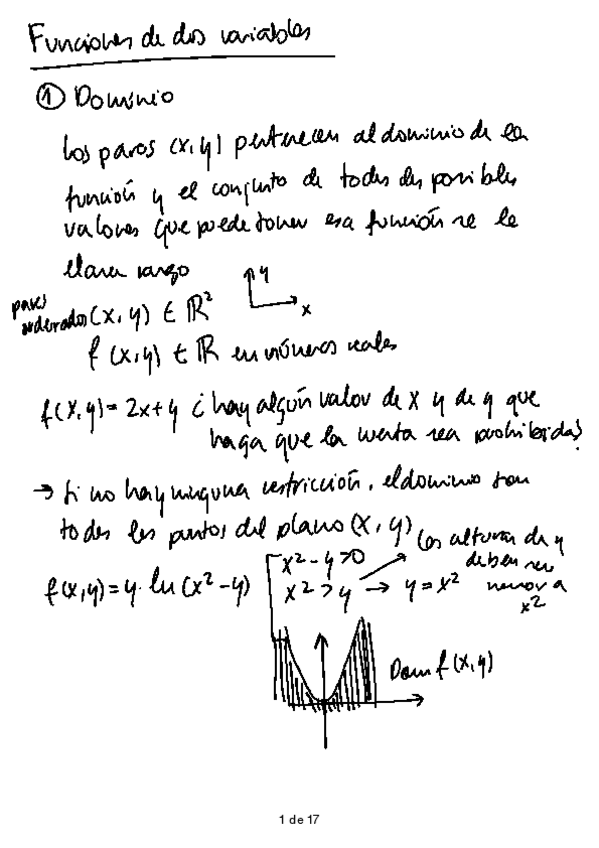 Funciones de dos variables
① Dominio
Los pares (x,y) pertenecen al dominio de la
función y el conjunto de todos los posibles
valores que puede tomar esa función se le
llama rango
pares
ordenados (x, y) ∈ ℝ²
y
x
f (x,y) ∈ ℝ en números reales
f(x,y) = 2x+y ¿hay algún valor de x y de y que
haga que la cuenta sea prohibida?
→ Si no hay ninguna restricción, el dominio son
todos los puntos del plano (x, y)
f(x,y) = y · ln (x² - y)
x² - y > 0
x² > y → y = x²
Las alturas de y
deben ser
menor a
x²
Dom f (x,y)
1 de 17